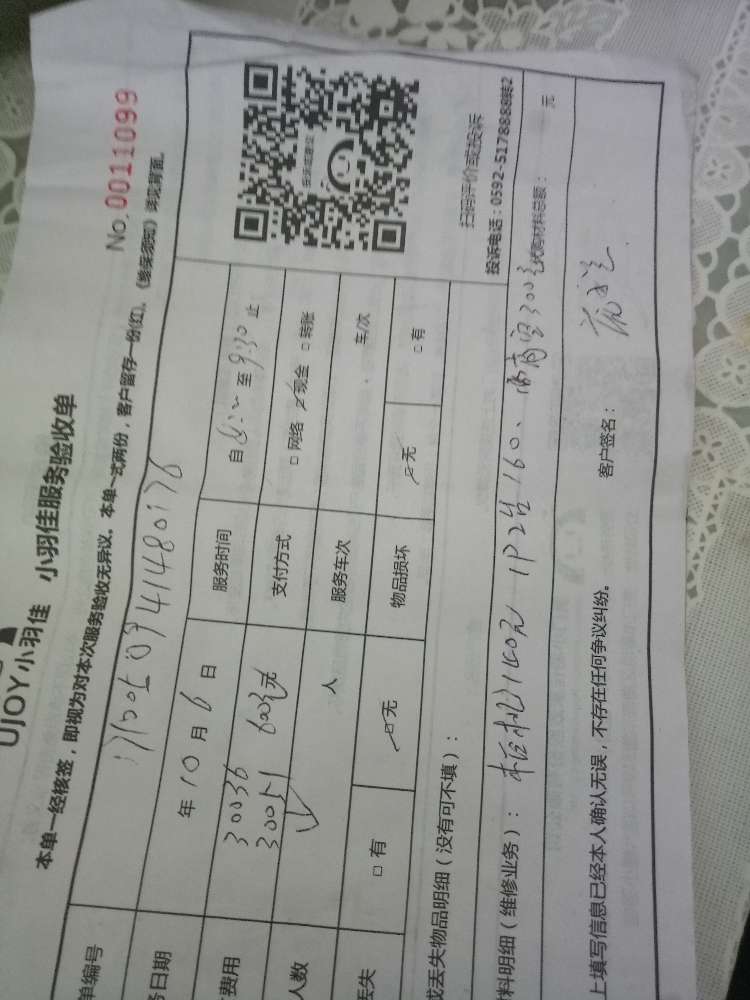 No.0011099
UJOY小羽佳 小羽佳服务验收单
本单一经核签，即视为对本次服务验收无异议。本单一式两份，客户留存一份(红)。《维保须知》详见背面。
单编号
日期 年10月6日 服务时间 自 至9:30止
费用 30036 30051 600元 支付方式 □网络 现金 □转账
人数 人 服务车次 车/次
丢失 □有 □无 物品损坏 □无 □有
扫码评价或投诉
投诉电话：0592-5178888转2
或丢失物品明细（没有可不填）：
料明细（维修业务）： 140元 1P2 160、 300元 代购材料总额： 元
上填写信息已经本人确认无误，不存在任何争议纠纷。 客户签名：